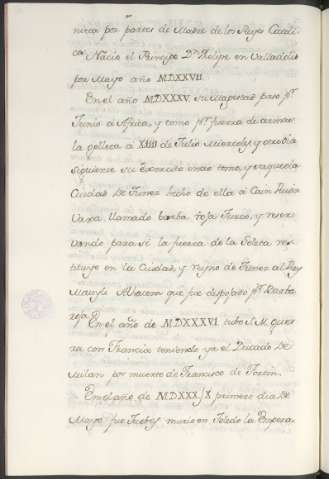 nieta por partes de Madre de los Reyes Catoli
cos Nacio el Principe Dn Phelipe en Valladolid
por Mayo año MDXXVII.
En el año MDXXXV, su Magestad paso pr
Junio a Africa, y tomo pr fuerza de armas
la Goleta a XIIII de Julio Miercoles, y otro dia
siguiente su Exercito
Ciudad de Tunez hecho de ella a
Vaxa, llamado barba roja Turco, y reser
vando para si la fuerza de la Goleta res
tituyo en la Ciudad, y Reyno de Tunez al Rey
que fue despojado pr Barba
roja.
En el año de MDXXXVI tubo S. M. guer
ra con Francia teniendole ya el Ducado de
Milan por muerte de Francisco de
En el año de MDXXXIX primero dia de
Mayo fue Jueves murio en Toledo la Empera